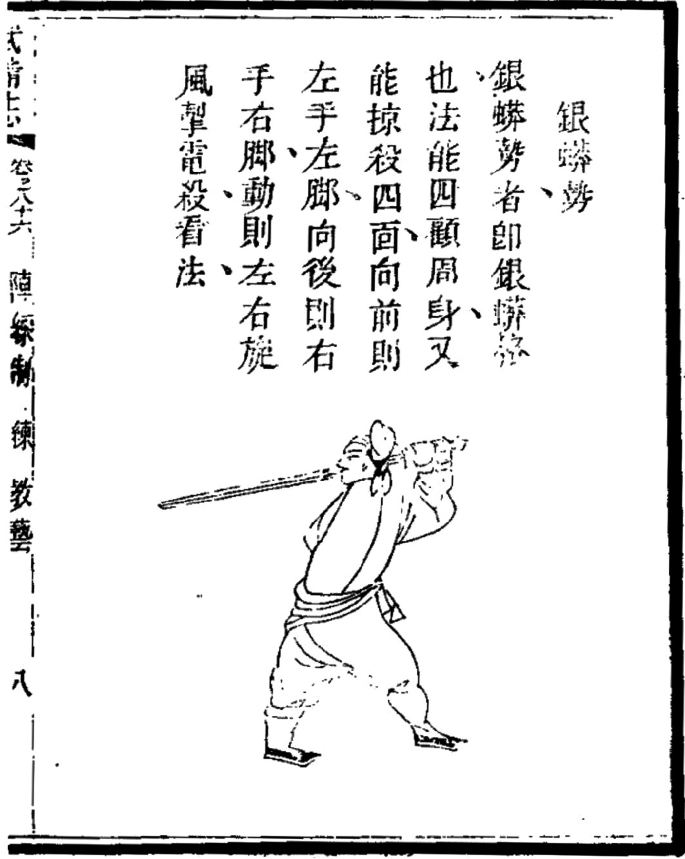 銀蟒勢
銀蟒勢者即銀蟒
也法能四顧周身又
能掠殺四面向前則
左手左脚向後則右
手右脚動則左右旋
風掣電殺看法
武備志 卷之八十六 陣練制 練 教藝 八